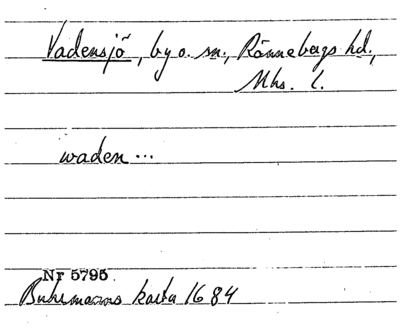 Vadensjö, by o. sn., Rönnebergs hd.,
Mhs. l.
waden...
Nr 5795
Buhrmanns karta 1684